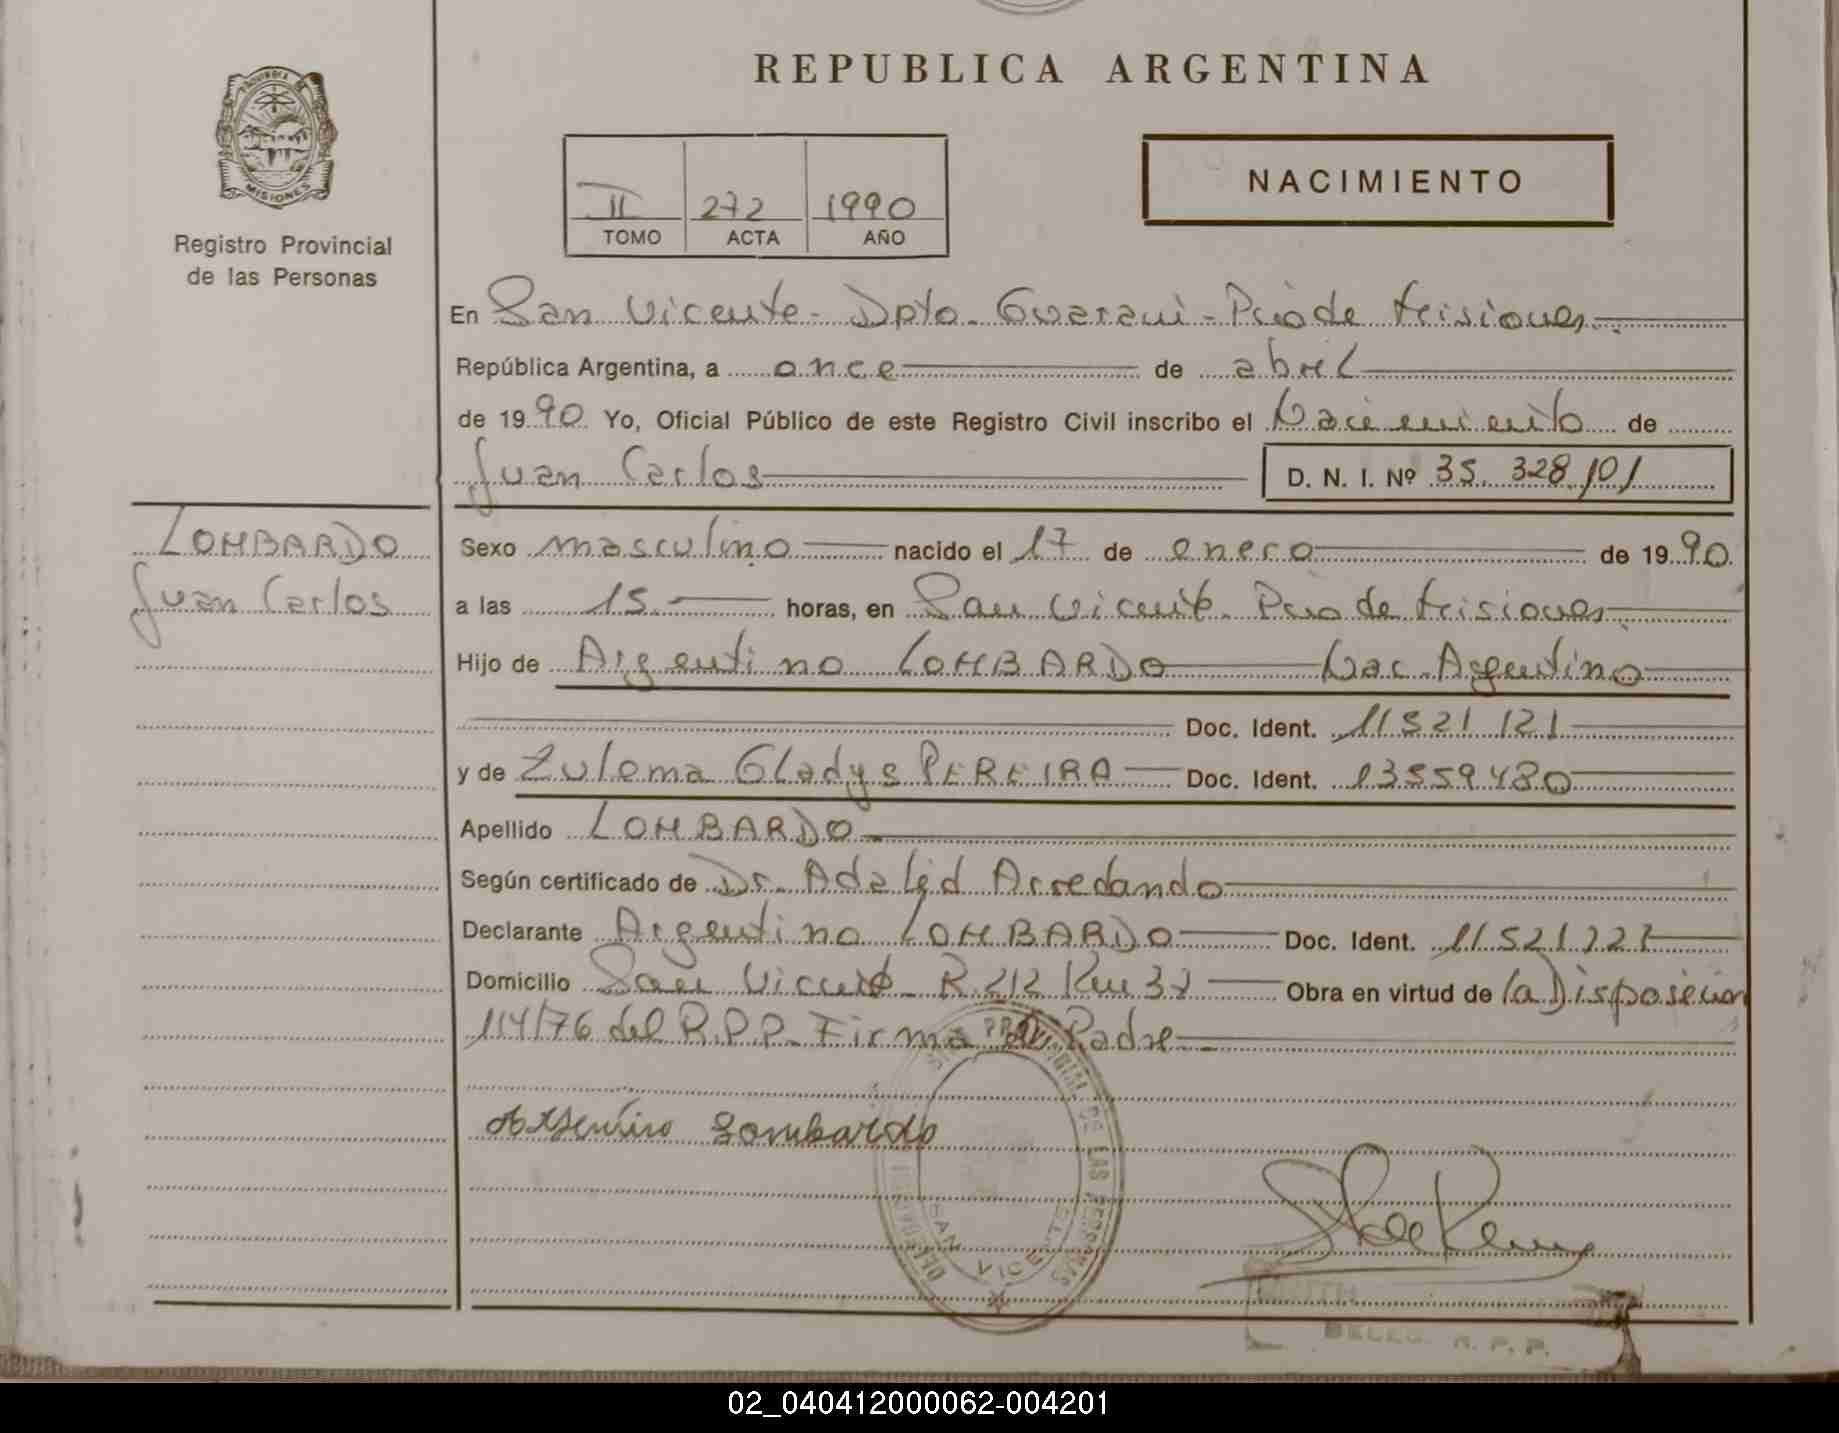 REPUBLICA ARGENTINA
PROVINCIA DE
MISIONES
Registro Provincial
de las Personas
II 272 1990
TOMO ACTA AÑO
NACIMIENTO
En San Vicente - Dpto. Guaraní - Pcia de Misiones
República Argentina, a once de abril
de 1990 Yo, Oficial Público de este Registro Civil inscribo el Nacimiento de
Juan Carlos D. N. I. Nº 35.328.101
LOMBARDO
Juan Carlos
Sexo masculino nacido el 17 de enero de 1990.
a las 15 horas, en San Vicente - Pcia de Misiones
Hijo de Argentino LOMBARDO Nac. Argentino
Doc. Ident. 11521.121
y de Zulema Gladys PEREIRA Doc. Ident. 13559480
Apellido LOMBARDO
Según certificado de Dr. Adalid Arredando
Declarante Argentino LOMBARDO Doc. Ident. 11521121
Domicilio San Vicente - R. 212 Km 32 Obra en virtud de la Disposición
114/76 del R.P.P. Firma del Padre
Argentino Lombardo
PROVINCIAL DE LAS PERSONAS
DELEGACION
SAN VICENTE
DELEG. R. P. P.
02_040412000062-004201